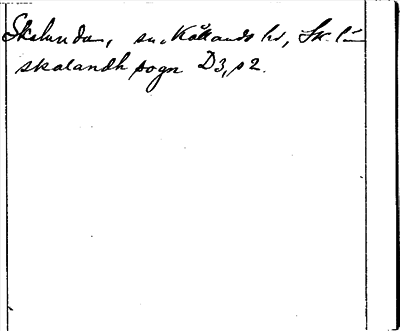 Skalunda, sn, Kållands hd, Sk. län
skalandh sogn D3, s2.